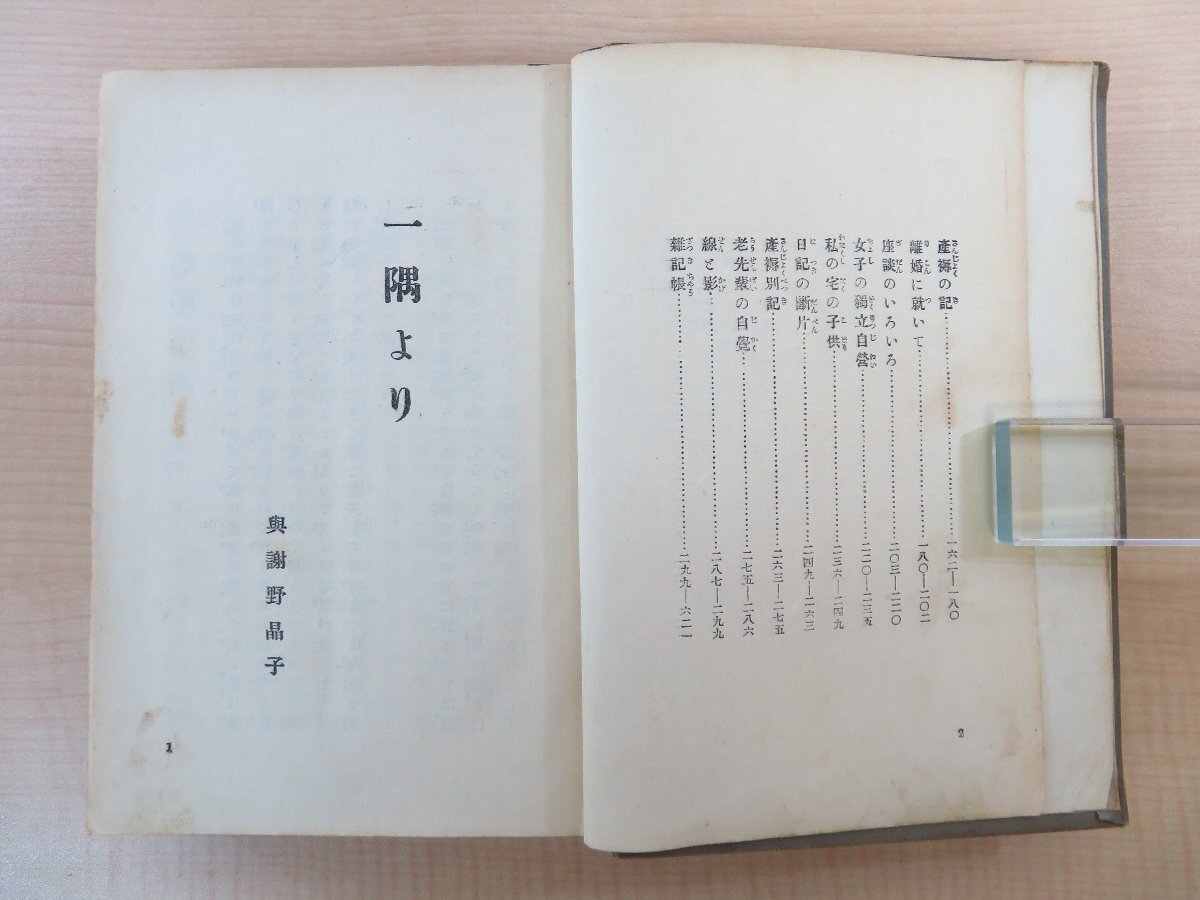 産褥の記……一六二―一八〇
離婚に就いて……一八〇―二〇二
座談のいろいろ……二〇三―二二〇
女子の獨立自營……二二〇―二三五
私の宅の子供……二三六―二四九
日記の斷片……二四九―二六三
産褥別記……二六三―二七五
老先輩の自覺……二七五―二八六
線と影……二八七―二九九
雜記帳……二九九―六二一
2
一隅より
與謝野晶子
1